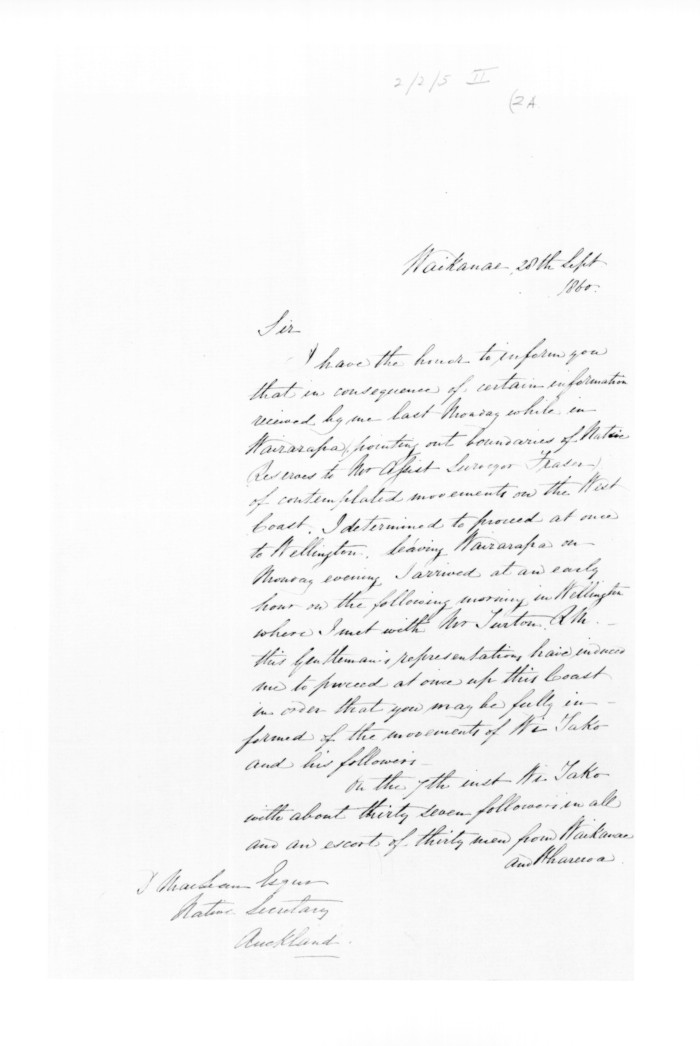 2/2/5 II
(2A
Waikanae 28th Sept
1860.
Sir
I have the honor to inform you
that in consequence of certain information
received by me last Monday while in
Wairarapa, pointing out boundaries of Native
Reserves to Mr Assist Surveyor Fraser,
of contemplated movements on the West
Coast. I determined to proceed at once
to Wellington. leaving Wairarapa on
Monday evening I arrived at an early
hour on the following morning in Wellington
where I met with Mr Turton. R.M. –
this Gentleman's representations have induced
me to proceed at once up this Coast
in order that you may be fully in-
formed of the movements of Wi Tako
and his followers –
On the 7th inst Wi Tako
with about thirty seven followers in all
and an escort of thirty men from Waikanae
and Wharewa
D MacLean Esqur
Native Secretary
Auckland.